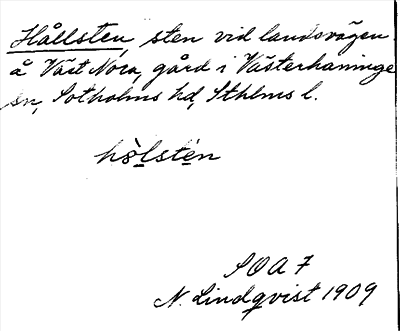 Hållsten, sten vid landsvägen
å Väst Nora, gård i Västerhaninge
sn, Sotholms hd, Sthlms l.
hòlstén
SOA 7
N. Lindqvist 1909